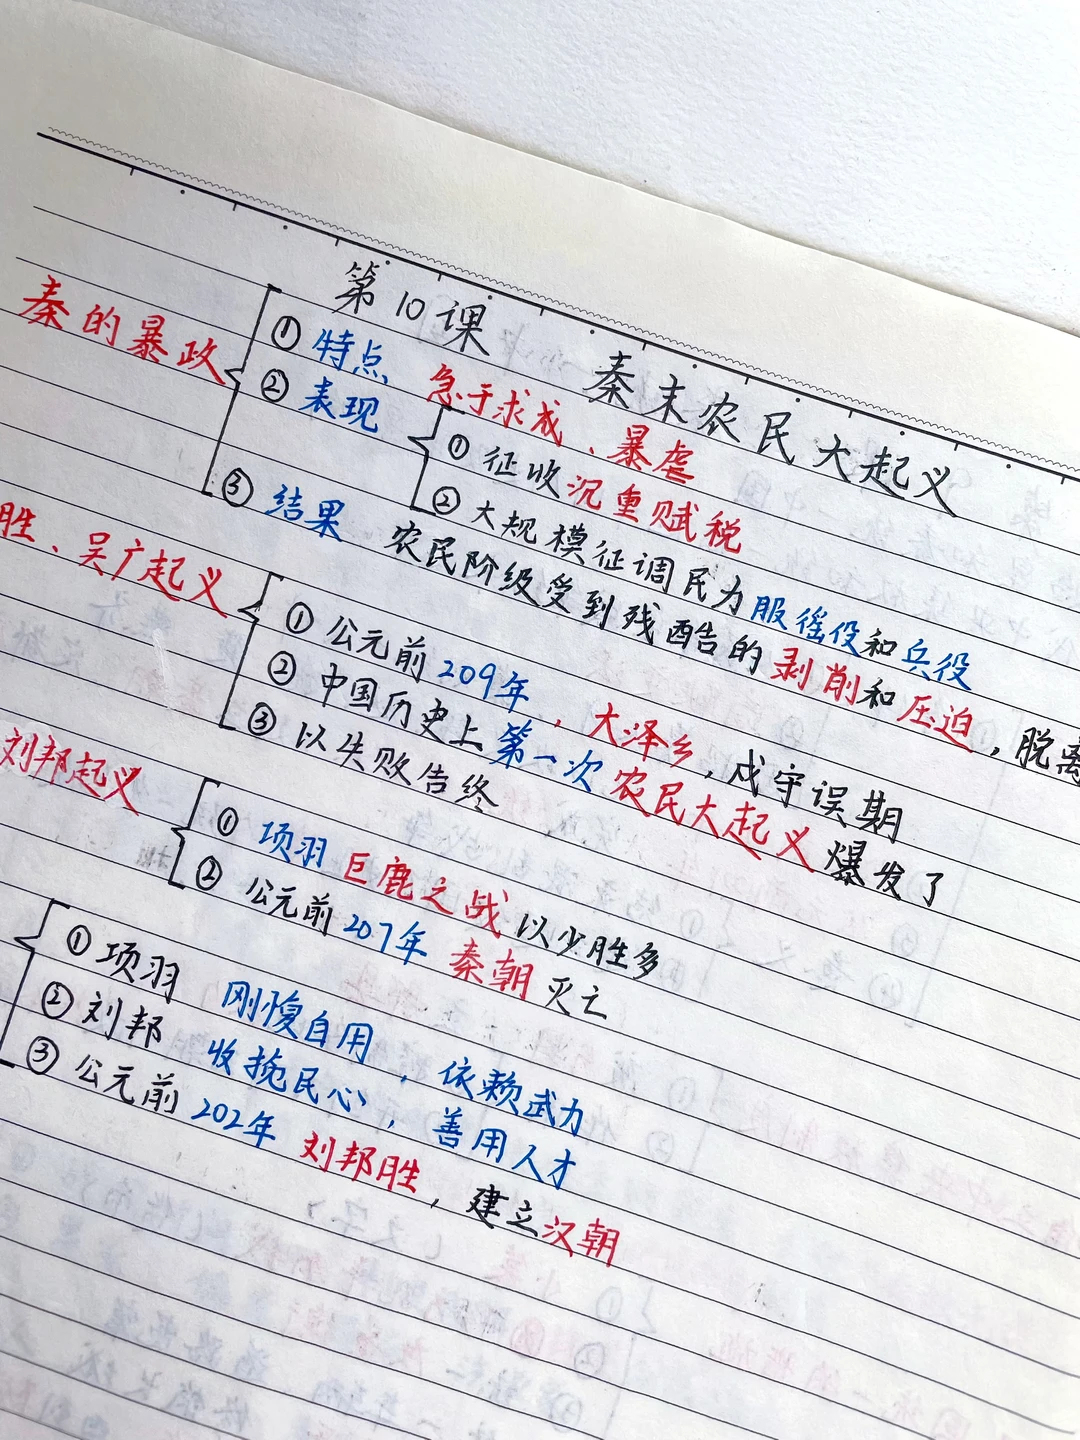 第10课 秦末农民大起义
秦的暴政
① 特点 急于求成、暴虐
② 表现
① 征收沉重赋税
② 大规模征调民力服徭役和兵役
③ 结果 农民阶级受到残酷的剥削和压迫，脱离
胜、吴广起义
① 公元前209年，大泽乡，戍守误期
② 中国历史上第一次农民大起义爆发了
③ 以失败告终
刘邦起义
① 项羽 巨鹿之战 以少胜多
② 公元前207年 秦朝灭亡
① 项羽 刚愎自用，依赖武力
② 刘邦 收挽民心，善用人才
③ 公元前202年 刘邦胜，建立汉朝